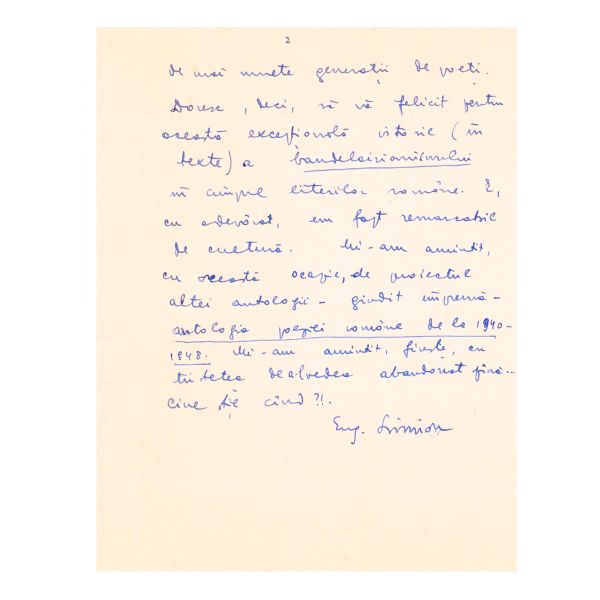 2
de mai multe generații de poeți.
Doresc, deci, să vă felicit pentru
această excepțională istorie (în
texte) a baudelairianismului
în cîmpul literilor române. E,
cu adevărat, un fapt remarcabil
de cultură. Mi-am amintit,
cu această ocazie, de proiectul
altei antologii – gîndit împreună –
antologia poeziei române de la 1940-
1948. Mi-am amintit, firește, cu
tristețea de a-l vedea abandonat pînă..
cine știe cînd?!.
Eug. Simion